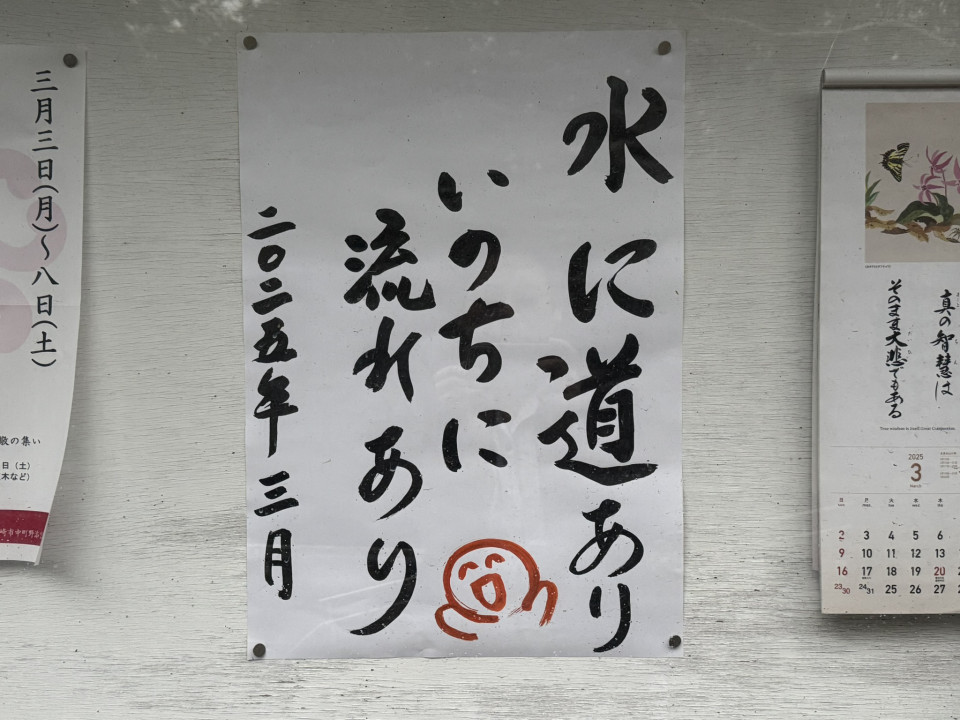 水に道あり
いのちに
流れあり
二〇二五年三月
三月三日(月)〜八日(土)
敬の集い
日(土)
木など)
崎市中町野
真の智慧は
そのまま大悲でもある
True wisdom is itself Great Compassion.
2025
3
March
日 月 火 水 木
2 3 4 5 6
9 10 11 12 13
16 17 18 19 20
23/30 24/31 25 26 27